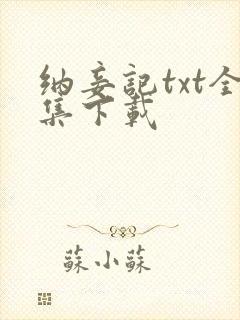 纳妾記txt全
集下載
蘇小蘇